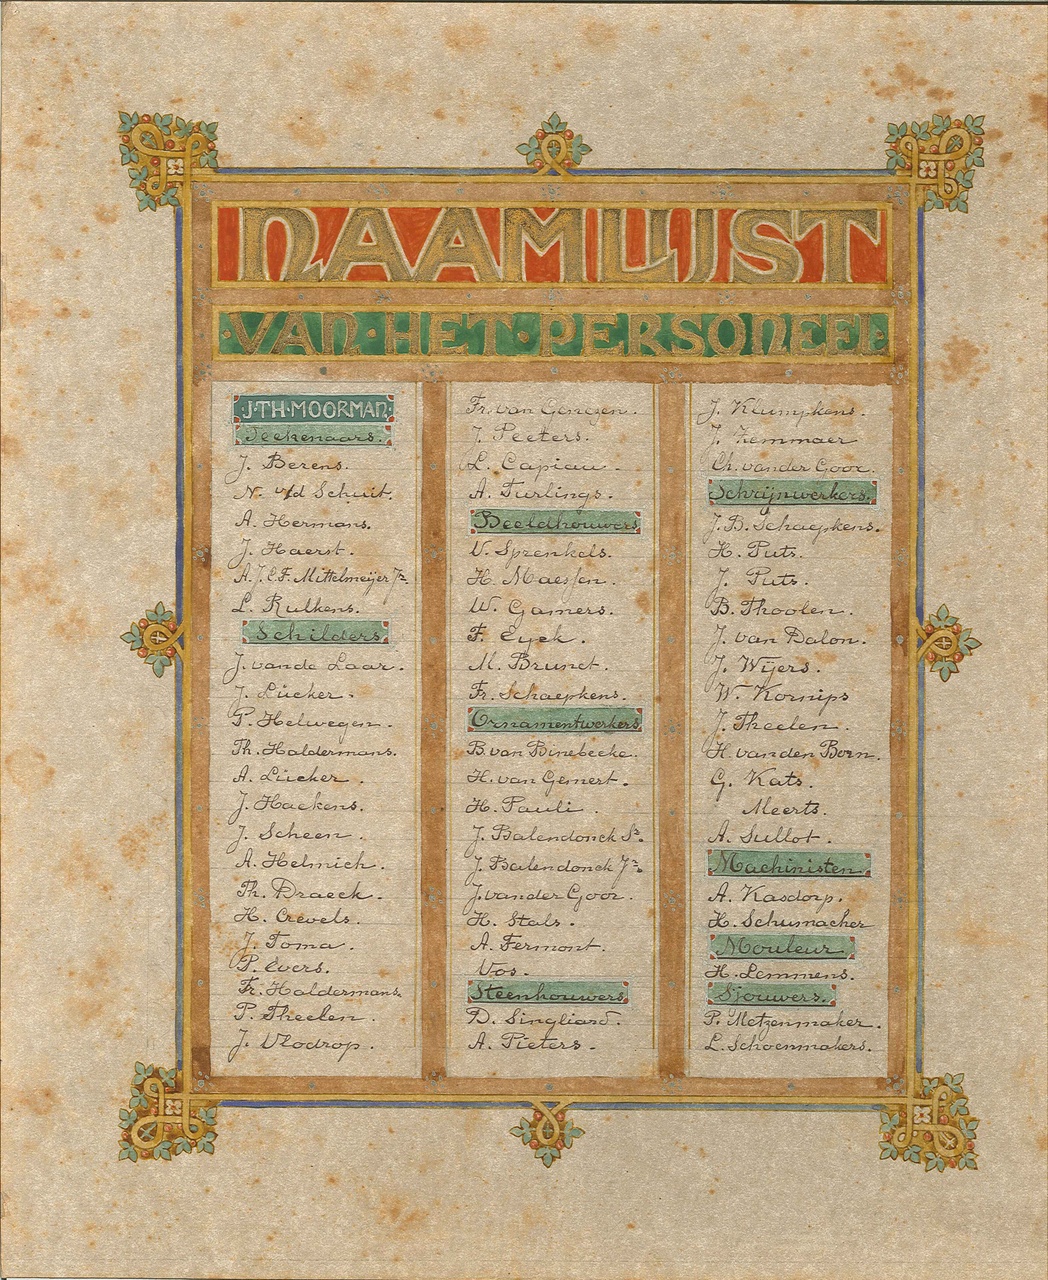 NAAMLIJST
VAN·HET·PERSONEEL
J·TH·MOORMAN·
Teekenaars.
J. Berens.
N. v/d Schuit.
A. Hermans.
J. Haerst.
A.J.C.F. Mittelmeijer Jr.
L. Rulkens.
Schilders
J. vande Laar.
J. Lücker.
P. Helwegen.
Th. Haldermans.
A. Lücker.
J. Haekens.
J. Scheen.
A. Helmich.
Th. Draeck.
H. Crevels.
J. Toma.
P. Evers.
Fr. Haldermans.
P. Theelen.
J. Vlodrop.
Fr. van Genegen.
J. Peeters.
L. Capiau.
A. Turlings.
Beeldhouwers
V. Sprenkels.
H. Maessen.
W. Gamers.
F. Eyck.
M. Brunet.
Fr. Schaepkens.
Ornamentwerkers
B. van Binebeeke.
H. van Gemert.
H. Pauli.
J. Balendonck Sr.
J. Balendonck Jr.
J. vander Goor.
H. Stals.
A. Fermont.
Vos.
Steenhouwers
D. Singliard.
A. Pieters.
J. Klumpkens.
J. Zemmaer
Ch. vander Goor.
Schrijnwerkers.
J.B. Schaepkens.
H. Puts.
J. Puts.
B. Thoolen.
J. van Dalon.
J. Wijers.
W. Kornips
J. Theelen.
H. vanden Born.
G. Kats.
Meerts.
A. Sullot.
Machinisten
A. Kasdorp.
H. Schumacher
Mouleur
H. Lemmens.
Sjouwers.
P. Metzenmaker.
L. Schoenmakers.